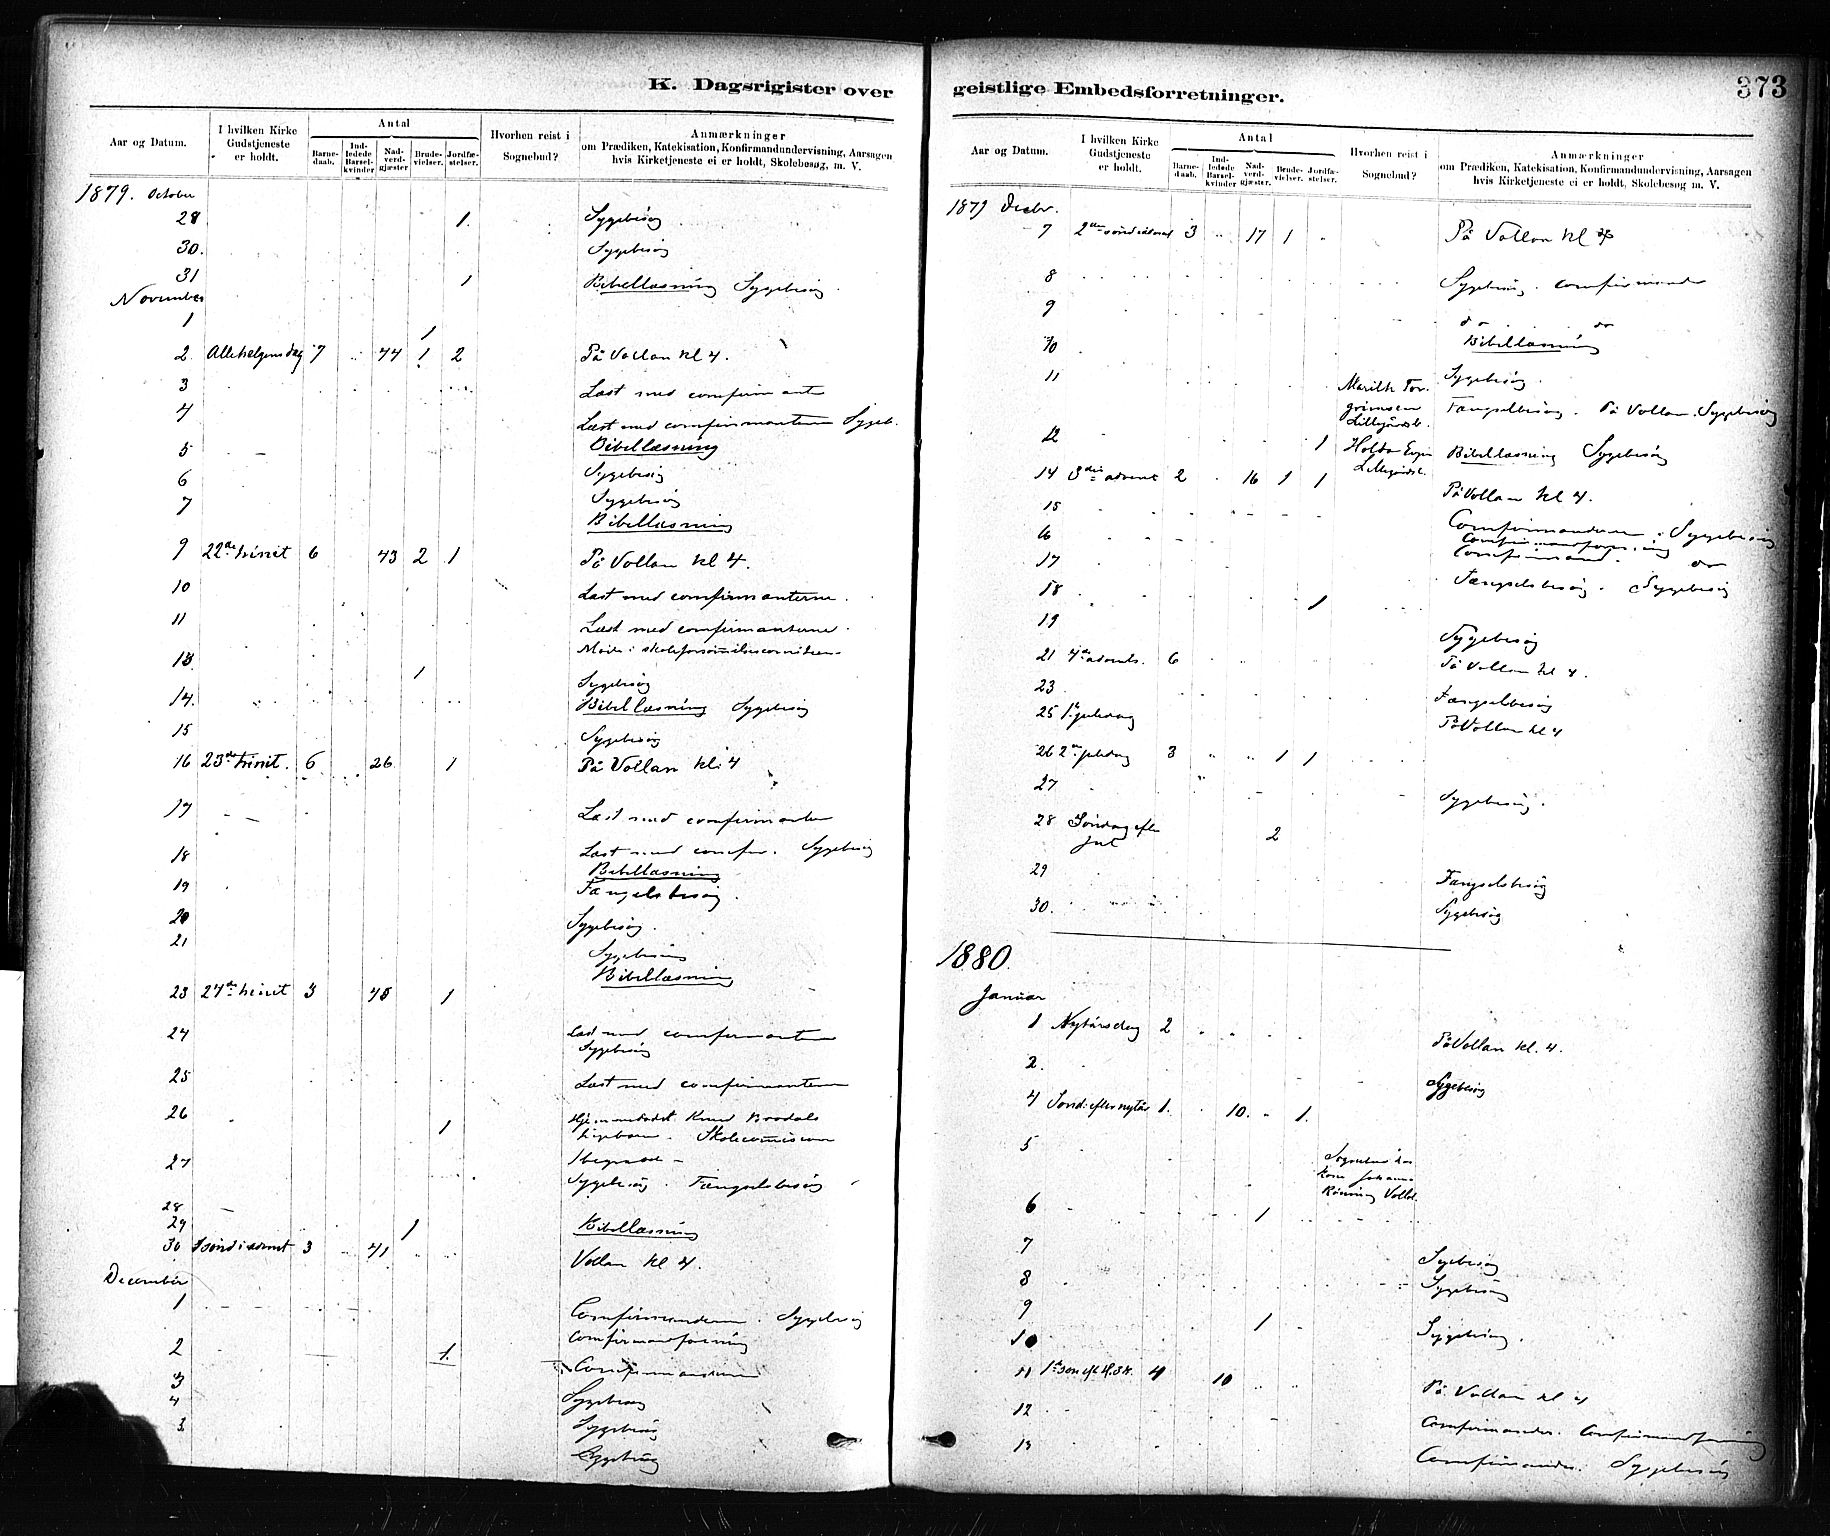 K. Dagsrigister over
Aar og Datum.
I hvilken Kirke Gudstjeneste er holdt.
Antal
Barne-daab.
Ind-ledede Barsel-kvinder
Nad-verd-gjæster
Brude-vielser.
Jordfæ-stelser.
Hvorhen reist i Sognebud?
Anmærkninger
om Prædiken, Katekisation, Konfirmandundervisning, Aarsagen
hvis Kirketjeneste ei er holdt, Skolebesøg, m. V.
1879. October
28 1. Sygebesøg
30. Sygebesøg
31 1 Bibellæsning Sygebesøg
November
1 1
2 Allehelgensdag 7 44 1 2 På Vollan kl 4.
3 Læst med comfirmanter
4 Læst med comfirmanterne Sygeb.
5 Bibellæsning
6 Sygebesøg
7 Sygebesøg
Bibellæsning
9 22de trinit 6 43 2 1 På Vollan kl 4.
10 Læst med comfirmanterne.
11 Læst med comfirmanterne.
Møde i
13 1 Sygebesøg
14. Bibellæsning Sygebesøg
15 Sygebesøg
16 23de trinit. 6 26 1 På Vollan kl. 4
17 Læst med comfirmanter
18 Læst med comfir. Sygebesøg
Bibellæsning
19 Fængelsbesøg.
20 Sygebesøg.
21 Sygebesøg
Bibellæsning
23 24de trinit 3 45 1
24 Læst med comfirmanterne
Sygebesøg
25 Læst med comfirmanterne
26 1 Hjemmedøbt Knud
Skolecomiscion
27 1 begravet
Sygebesøg. Fængselsbesøg
28
29 1 Bibellæsning
30 1 sønd i advent 3 41 Vollan kl 4.
December
1 Comfirmanderne. Sygebesøg
Comfirmandforening
2 1. Comfirmanderne
3 Sygebesøg
4 Sygebesøg
Sygebesøg
geistlige Embedsforretninger.
373
Aar og Datum.
I hvilken Kirke Gudstjeneste er holdt.
Antal
Barne-daab.
Ind-ledede Barsel-kvinder
Nad-verd-gjæster.
Brude-vielser.
Jordfæ-stelser.
Hvorhen reist i Sognebud?
Anmærkninger
om Prædiken, Katekisation, Konfirmandundervisning, Aarsagen
hvis Kirketjeneste ei er holdt, Skolebesøg, m. V.
1879 Decbr.
7 2den sønd i advent 3 17 1 På Vollan kl 4
8 Sygebesøg. comfirmander
9 do do
10 Bibellæsning
11 Sygebesøg.
Marith Tor-
grimsen Fængselbesøg. På Vollan. Sygebesøg
Lillegårdsb.
12 1 Bibellæsning Sygebesøg
14 3die advent 2 16 1 1 På Vollan kl 4.
15 Comfirmanderne. Sygebesøg
16 Comfirmandforening
17 Comfirmand. do
18 1 Fængselsbesøg. Sygebesøg
19 Sygebesøg
21 4de advents. 6 På Vollan kl 4.
23 Fængselbesøg
25 1ste juledag På Vollan kl 4
26 2den juledag 3 1 1
27 Sygebesøg.
28 Søndag efter Jul 2
29 Fængselsbesøg
30. Sygebesøg
1880.
Januar
1 Nytårsdag 2 På Vollan kl. 4.
2. Sygebesøg
4 Sønd. efter nytår 1. 10. 1.
5 Johanna
Rönning Volld.
6 1
7 Sygebesøg
8 Sygebesøg
9 1
10 Sygebesøg.
11 1ste søn eft H.3K. 4 10 På Vollan kl 4
12 Comfirmander. Comfirmandforening
13 Comfirmander. Sygebesøg